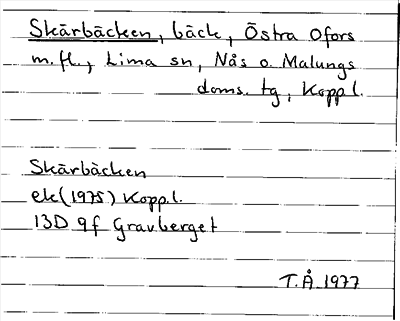 Skärbäcken, bäck, Östra Ofors
m.fl., Lima sn, Nås o. Malungs
doms. tg, Kopp.l.
Skärbäcken
ek(1975) Kopp.l.
13D 9f Gravberget
T.Å 1977